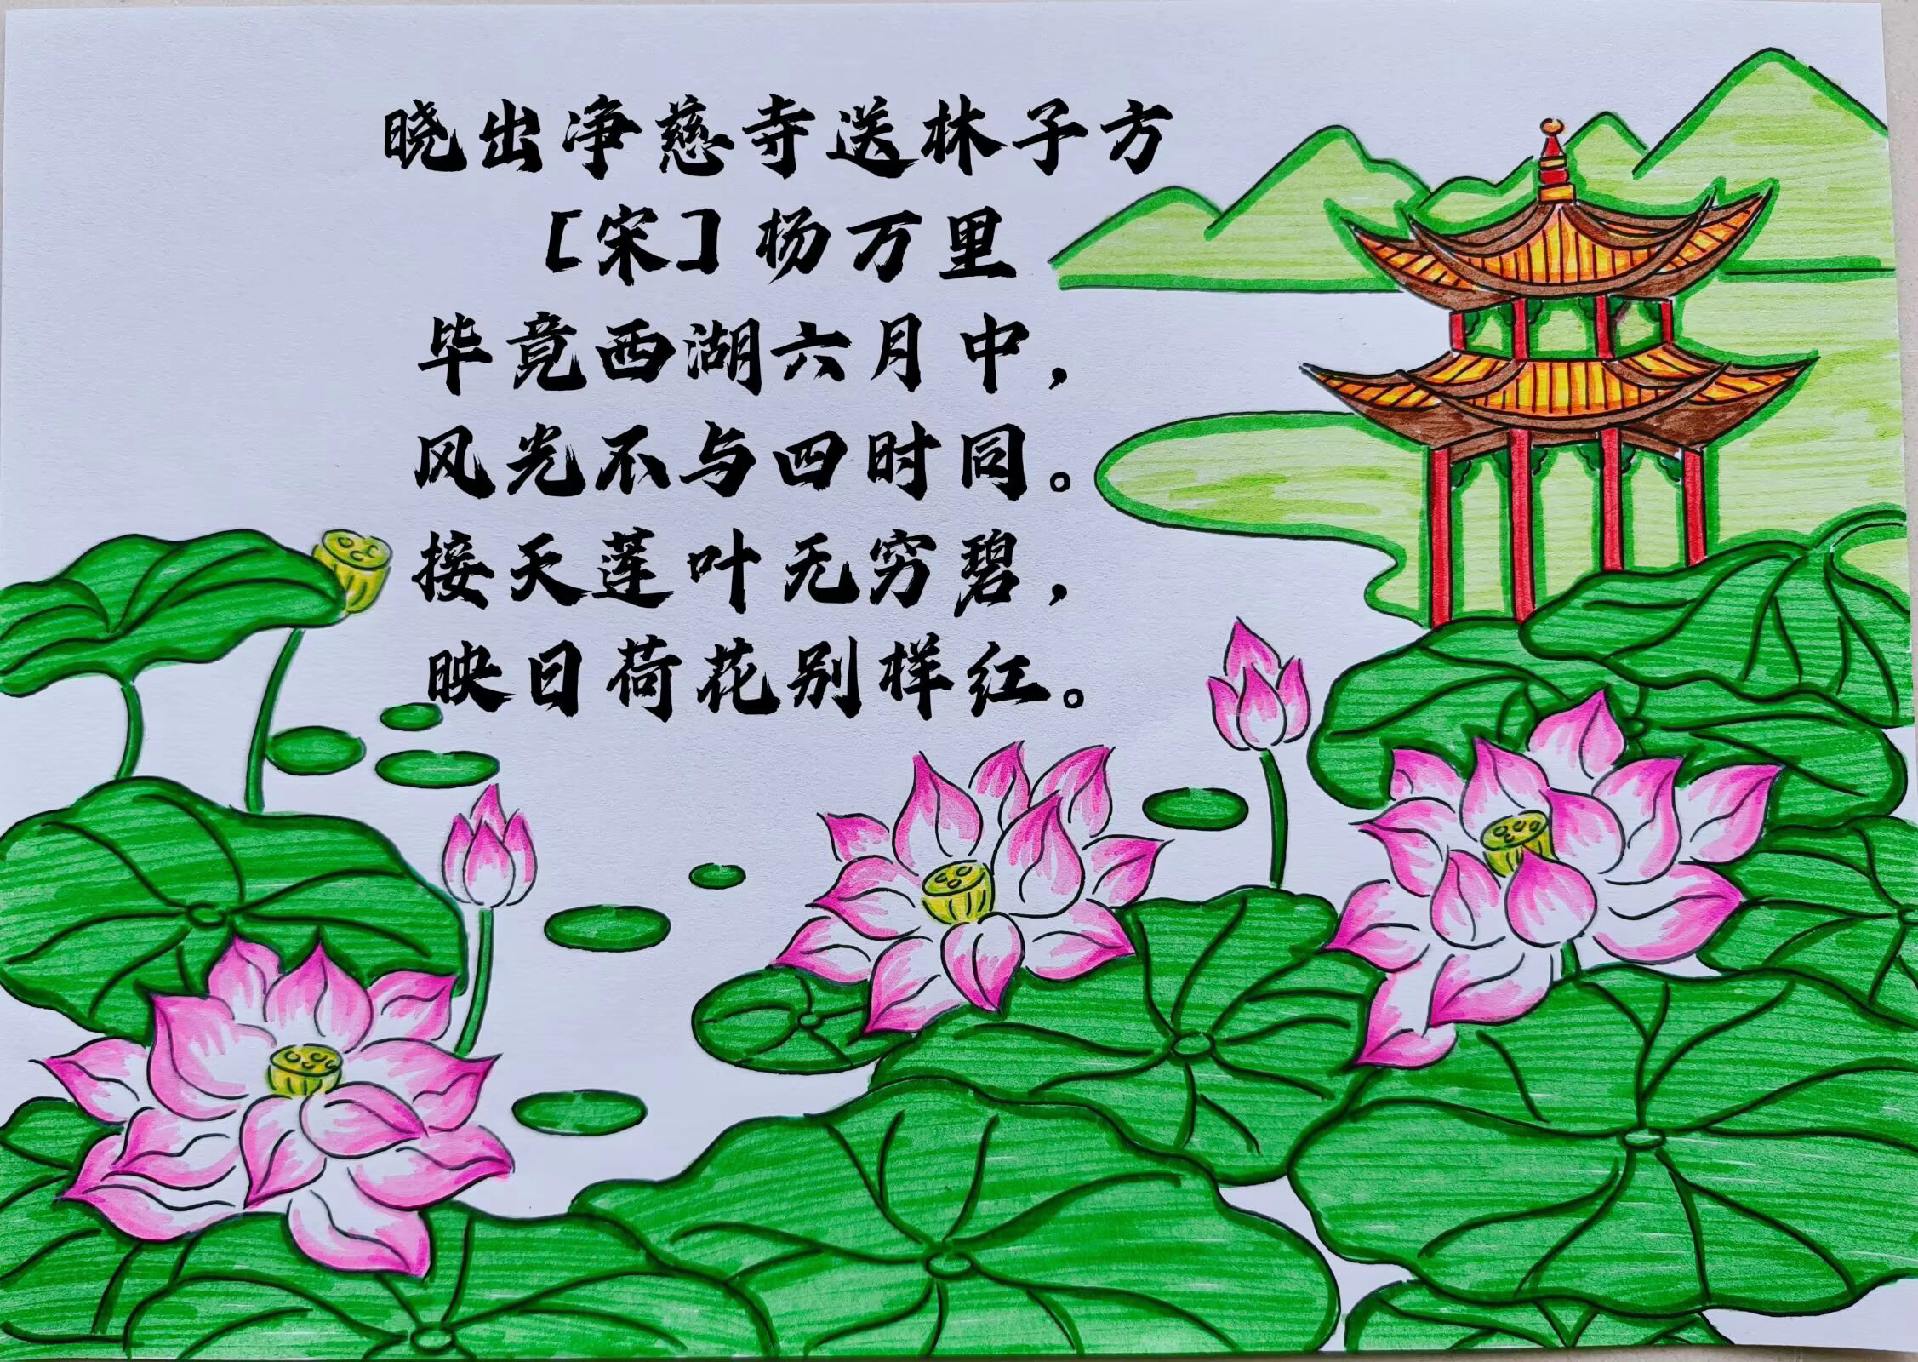 晓出净慈寺送林子方
［宋］杨万里
毕竟西湖六月中，
风光不与四时同。
接天莲叶无穷碧，
映日荷花别样红。